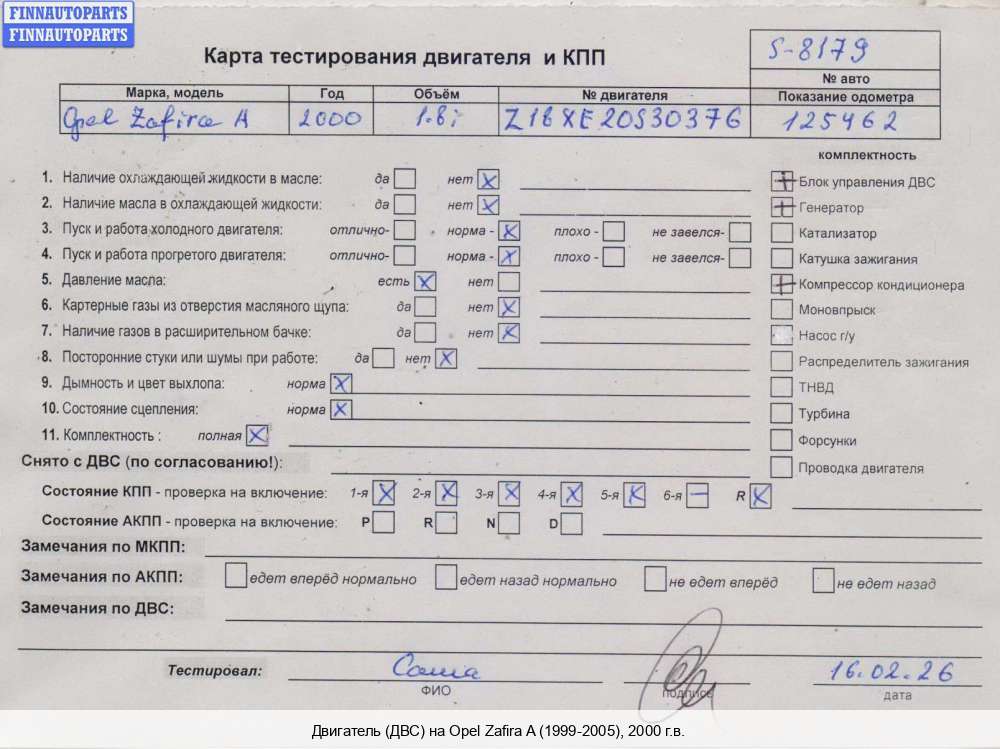 FINNAUTOPARTS
FINNAUTOPARTS
Карта тестирования двигателя и КПП
S-8179
№ авто
Марка, модель Год Объём № двигателя Показание одометра
Opel Zafira A 2000 1.8i Z18XE20S30376 125462
комплектность
1. Наличие охлаждающей жидкости в масле: да нет Блок управления ДВС
2. Наличие масла в охлаждающей жидкости: да нет Генератор
3. Пуск и работа холодного двигателя: отлично- норма - плохо - не завелся- Катализатор
4. Пуск и работа прогретого двигателя: отлично- норма - плохо - не завелся- Катушка зажигания
5. Давление масла: есть нет Компрессор кондиционера
6. Картерные газы из отверстия масляного щупа: да нет Моновпрыск
7. Наличие газов в расширительном бачке: да нет Насос г/у
8. Посторонние стуки или шумы при работе: да нет Распределитель зажигания
9. Дымность и цвет выхлопа: норма ТНВД
10. Состояние сцепления: норма Турбина
11. Комплектность : полная Форсунки
Снято с ДВС (по согласованию!): Проводка двигателя
Состояние КПП - проверка на включение: 1-я 2-я 3-я 4-я 5-я 6-я R
Состояние АКПП - проверка на включение: P R N D
Замечания по МКПП:
Замечания по АКПП: едет вперёд нормально едет назад нормально не едет вперёд не едет назад
Замечания по ДВС:
Тестировал: Саша 16.02.26
ФИО подпись дата
Двигатель (ДВС) на Opel Zafira A (1999-2005), 2000 г.в.